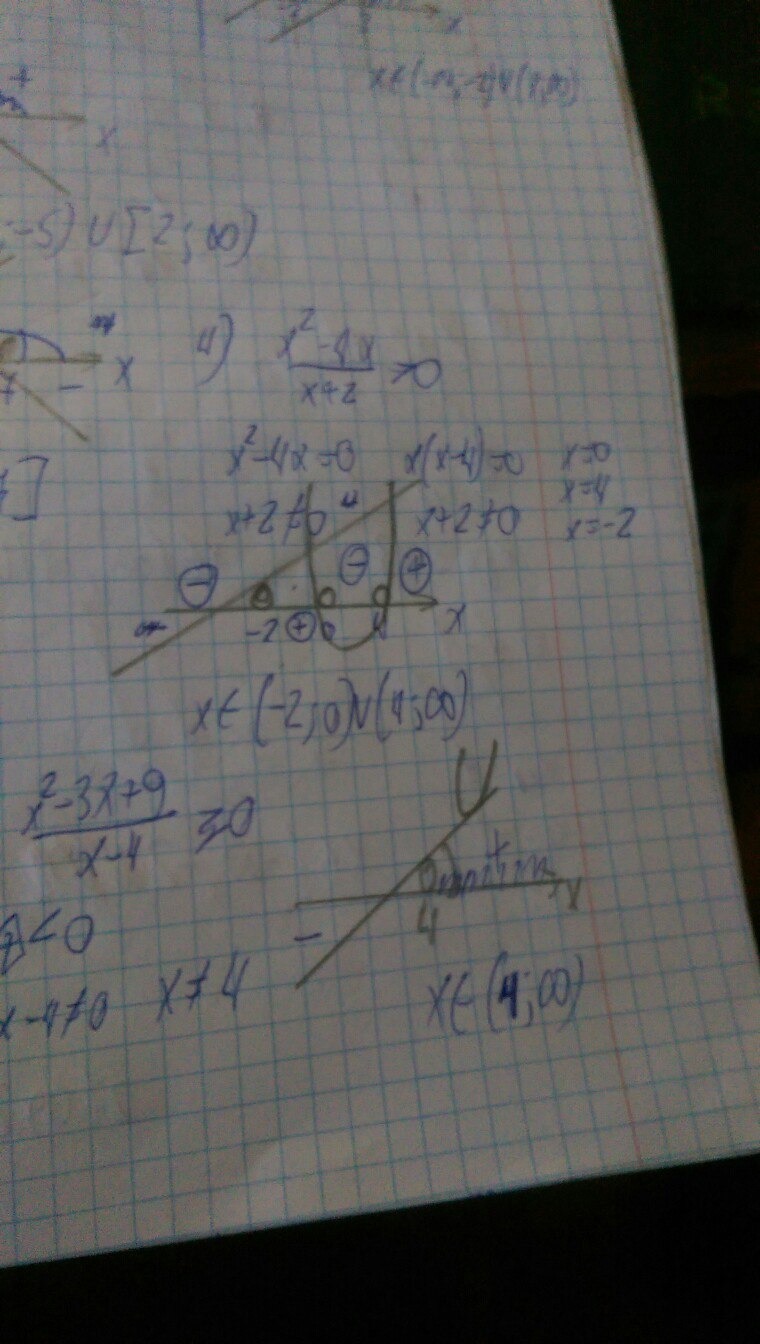 x
; -5) ∪ [2; ∞)
7 - x
4) x² - 4x / x+2 > 0
x² - 4x = 0 x(x-4) = 0 x=0
x=4
x+2 ≠ 0 x+2 ≠ 0 x=-2
- - +
-2 + 0 4 x
x ∈ (-2; 0) ∪ (4; ∞)
x² - 3x + 9 / x-4 ≥ 0
+
4 x
-
< 0
x-4 ≠ 0 x ≠ 4 x ∈ (4; ∞)